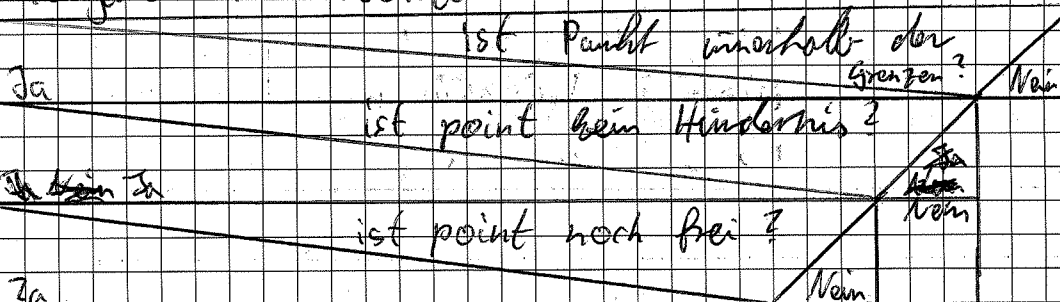 ist Punkt innerhalb der
Grenzen?
Ja
Nein
ist point kein Hindernis?
Ja
Nein
Ja
ist point noch frei?
Ja
Nein